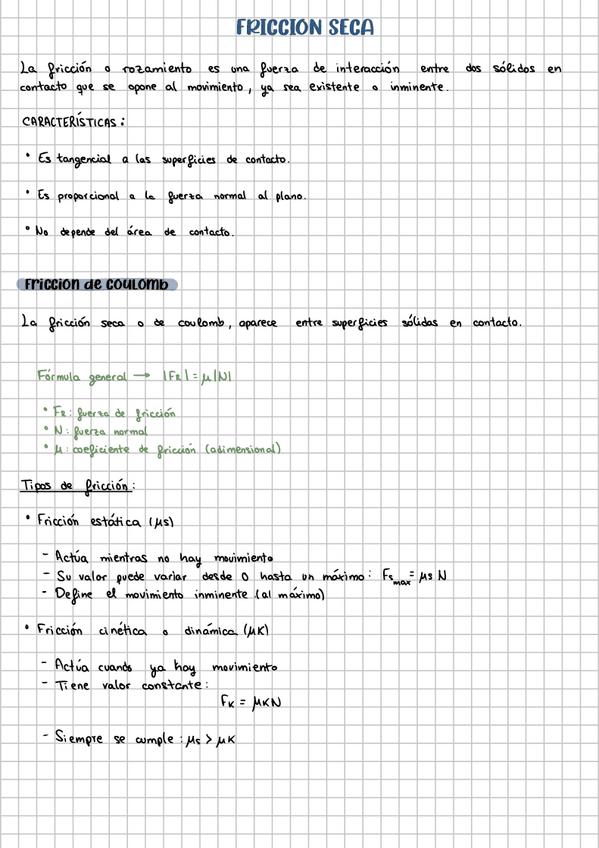 FRICCION SECA
La fricción o rozamiento es una fuerza de interacción entre dos sólidos en
contacto que se opone al movimiento, ya sea existente o inminente.
CARACTERÍSTICAS:
• Es tangencial a las superficies de contacto.
• Es proporcional a la fuerza normal al plano.
• No depende del área de contacto.
Friccion de coulomb
La fricción seca o de coulomb, aparece entre superficies sólidas en contacto.
Fórmula general → |FR| = μ|N|
• FR: fuerza de fricción
• N: fuerza normal
• μ: coeficiente de fricción (adimensional)
Tipos de fricción:
• Fricción estática (μs)
- Actúa mientras no hay movimiento
- Su valor puede variar desde 0 hasta un máximo: Fs max = μs N
- Define el movimiento inminente (al máximo)
• Fricción cinética o dinámica (μK)
- Actúa cuando ya hay movimiento
- Tiene valor constante:
FK = μKN
- Siempre se cumple: μs > μK